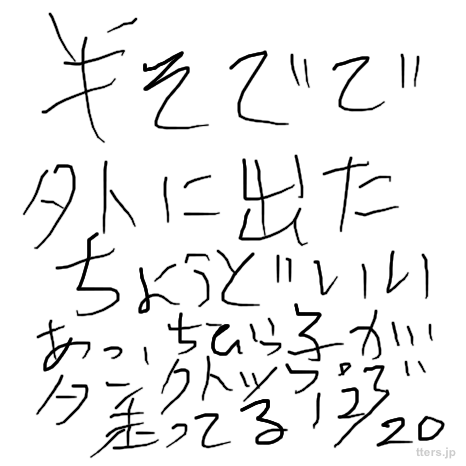 半そでで
外に出た
ちょうどいい
あっ、ちびっ子が
タンクトップで
走ってる 12/20
tters.jp